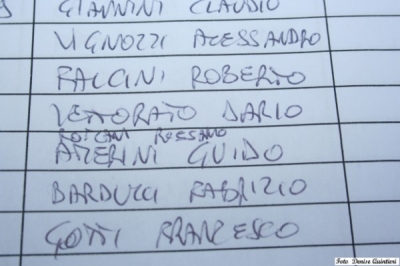 GIANNINI CLAUDIO
VIGNOZZI ALESSANDRO
FALCINI ROBERTO
VETTORATO DARIO
ROSSANO
ALTERINI GUIDO
BARDUCCI FABRIZIO
GOTTI FRANCESCO
Foto Denise Quintieri